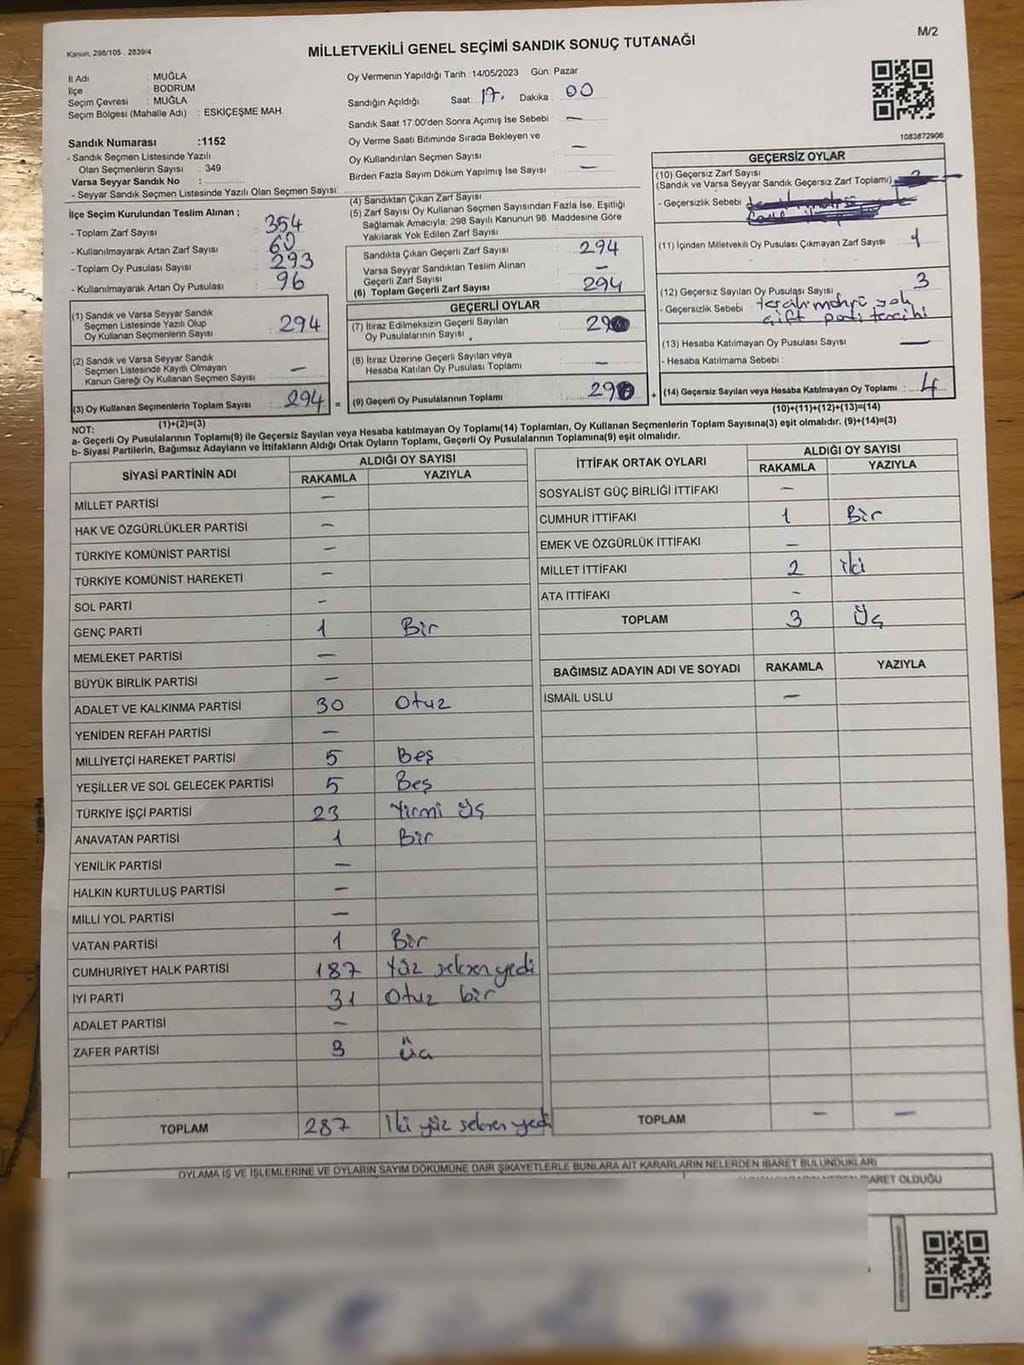 Kanun, 298/105 . 2839/4
MİLLETVEKİLİ GENEL SEÇİMİ SANDIK SONUÇ TUTANAĞI
M/2
İl Adı : MUĞLA
İlçe : BODRUM
Seçim Çevresi : MUĞLA
Seçim Bölgesi (Mahalle Adı) : ESKİÇEŞME MAH.
Oy Vermenin Yapıldığı Tarih :14/05/2023 Gün: Pazar
Sandığın Açıldığı Saat: 17. Dakika : 00
Sandık Saat 17:00'den Sonra Açımış İse Sebebi —
Oy Verme Saati Bitiminde Sırada Bekleyen ve
Oy Kullandırılan Seçmen Sayısı —
Birden Fazla Sayım Döküm Yapılmış İse Sayısı —
1083872906
Sandık Numarası :1152
- Sandık Seçmen Listesinde Yazılı
Olan Seçmenlerin Sayısı : 349
Varsa Seyyar Sandık No :
- Seyyar Sandık Seçmen Listesinde Yazılı Olan Seçmen Sayısı:
İlçe Seçim Kurulundan Teslim Alınan ;
- Toplam Zarf Sayısı : 354
- Kullanılmayarak Artan Zarf Sayısı : 60
- Toplam Oy Pusulası Sayısı : 293
- Kullanılmayarak Artan Oy Pusulası : 96
(1) Sandık ve Varsa Seyyar Sandık
Seçmen Listesinde Yazılı Olup
Oy Kullanan Seçmenlerin Sayısı : 294
(2) Sandık ve Varsa Seyyar Sandık
Seçmen Listesinde Kayıtlı Olmayan
Kanun Gereği Oy Kullanan Seçmen Sayısı —
(3) Oy Kullanan Seçmenlerin Toplam Sayısı : 294 =
(1)+(2)=(3)
(4) Sandıktan Çıkan Zarf Sayısı :
(5) Zarf Sayısı Oy Kullanan Seçmen Sayısından Fazla İse, Eşitliği
Sağlamak Amacıyla; 298 Sayılı Kanunun 98. Maddesine Göre
Yakılarak Yok Edilen Zarf Sayısı
Sandıkta Çıkan Geçerli Zarf Sayısı 294
Varsa Seyyar Sandıktan Teslim Alınan
Geçerli Zarf Sayısı —
(6) Toplam Geçerli Zarf Sayısı : 294
GEÇERLİ OYLAR
(7) İtiraz Edilmeksizin Geçerli Sayılan
Oy Pusulalarının Sayısı : 290
(8) İtiraz Üzerine Geçerli Sayılan veya
Hesaba Katılan Oy Pusulası Toplamı —
(9) Geçerli Oy Pusulalarının Toplamı : 290
GEÇERSİZ OYLAR
(10) Geçersiz Zarf Sayısı
(Sandık ve Varsa Seyyar Sandık Geçersiz Zarf Toplamı)
- Geçersizlik Sebebi
(11) İçinden Milletvekili Oy Pusulası Çıkmayan Zarf Sayısı 1
(12) Geçersiz Sayılan Oy Pusulası Sayısı 3
- Geçersizlik Sebebi : tercih mührü yok
çift parti tercihi
(13) Hesaba Katılmayan Oy Pusulası Sayısı —
- Hesaba Katılmama Sebebi :
(14) Geçersiz Sayılan veya Hesaba Katılmayan Oy Toplamı : 4
(10)+(11)+(12)+(13)=(14)
NOT:
a- Geçerli Oy Pusulalarının Toplamı(9) ile Geçersiz Sayılan veya Hesaba katılmayan Oy Toplamı(14) Toplamları, Oy Kullanan Seçmenlerin Toplam Sayısına(3) eşit olmalıdır. (9)+(14)=(3)
b- Siyasi Partilerin, Bağımsız Adayların ve İttifakların Aldığı Ortak Oyların Toplamı, Geçerli Oy Pusulalarının Toplamına(9) eşit olmalıdır.
SİYASİ PARTİNİN ADI ALDIĞI OY SAYISI
RAKAMLA YAZIYLA
MİLLET PARTİSİ —
HAK VE ÖZGÜRLÜKLER PARTİSİ —
TÜRKİYE KOMÜNİST PARTİSİ —
TÜRKİYE KOMÜNİST HAREKETİ —
SOL PARTİ -
GENÇ PARTİ 1 Bir
MEMLEKET PARTİSİ —
BÜYÜK BİRLİK PARTİSİ —
ADALET VE KALKINMA PARTİSİ 30 Otuz
YENİDEN REFAH PARTİSİ —
MİLLİYETÇİ HAREKET PARTİSİ 5 Beş
YEŞİLLER VE SOL GELECEK PARTİSİ 5 Beş
TÜRKİYE İŞÇİ PARTİSİ 23 Yirmi Üç
ANAVATAN PARTİSİ 1 Bir
YENİLİK PARTİSİ —
HALKIN KURTULUŞ PARTİSİ —
MİLLİ YOL PARTİSİ —
VATAN PARTİSİ 1 Bir
CUMHURİYET HALK PARTİSİ 187 Yüz seksen yedi
İYİ PARTİ 31 Otuz bir
ADALET PARTİSİ —
ZAFER PARTİSİ 3 üç
TOPLAM 287 İki yüz seksen yedi
İTTİFAK ORTAK OYLARI ALDIĞI OY SAYISI
RAKAMLA YAZIYLA
SOSYALİST GÜÇ BİRLİĞİ İTTİFAKI —
CUMHUR İTTİFAKI 1 Bir
EMEK VE ÖZGÜRLÜK İTTİFAKI —
MİLLET İTTİFAKI 2 iki
ATA İTTİFAKI -
TOPLAM 3 Üç
BAĞIMSIZ ADAYIN ADI VE SOYADI RAKAMLA YAZIYLA
İSMAİL USLU —
TOPLAM — —
OYLAMA İŞ VE İŞLEMLERİNE VE OYLARIN SAYIM DÖKÜMÜNE DAİR ŞİKAYETLERLE BUNLARA AİT KARARLARIN NELERDEN İBARET BULUNDUKLARI
OLDUĞU